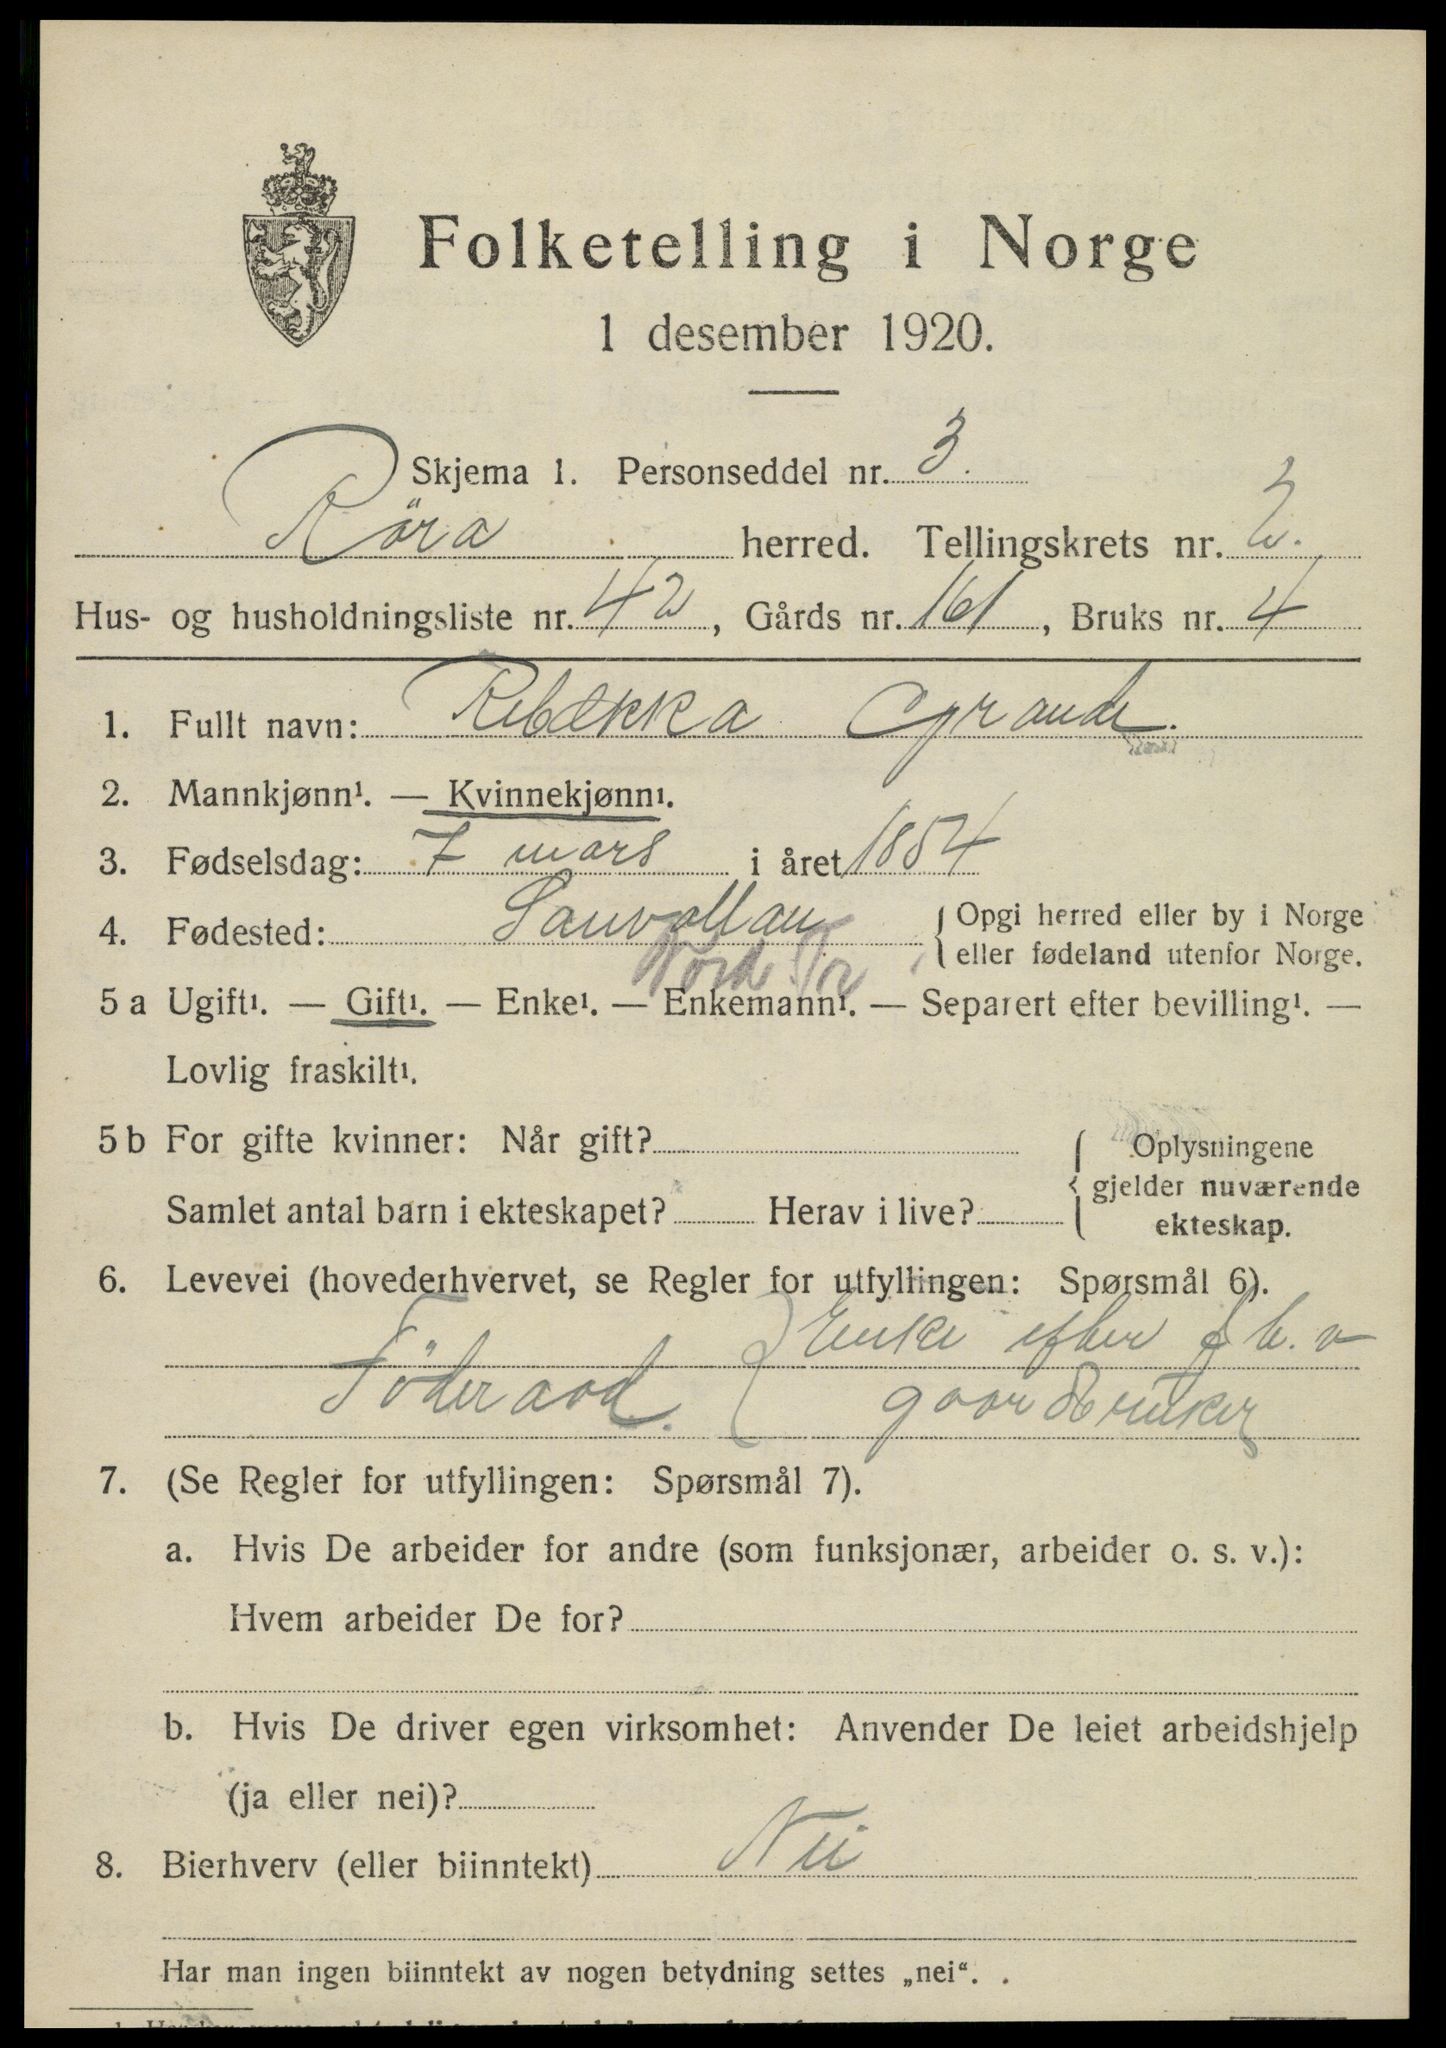 Folketelling i Norge
1 desember 1920.
Skjema 1. Personseddel nr. 3.
Röra herred. Tellingskrets nr. 2.
Hus- og husholdningsliste nr. 42, Gårds nr. 161, Bruks nr. 4
1. Fullt navn: Rebekka Grande.
2. Mannkjønn¹. — Kvinnekjønn¹.
3. Fødselsdag: 7 mars i året 1854
4. Fødested: Sauvollan { Opgi herred eller by i Norge
eller fødeland utenfor Norge.
Nord Tr
5 a Ugift¹. — Gift¹. — Enke¹. — Enkemann¹. — Separert efter bevilling¹. —
Lovlig fraskilt¹.
5 b For gifte kvinner: Når gift?
Samlet antal barn i ekteskapet? Herav i live?
{ Oplysningene
gjelder nuværende
ekteskap.
6. Levevei (hovederhvervet, se Regler for utfyllingen: Spørsmål 6).
Föderaad. { Enke efter
gaardbruker
7. (Se Regler for utfyllingen: Spørsmål 7).
a. Hvis De arbeider for andre (som funksjonær, arbeider o. s. v.):
Hvem arbeider De for?
b. Hvis De driver egen virksomhet: Anvender De leiet arbeidshjelp
(ja eller nei)?
8. Bierhverv (eller biinntekt) Nei
Har man ingen biinntekt av nogen betydning settes „nei".